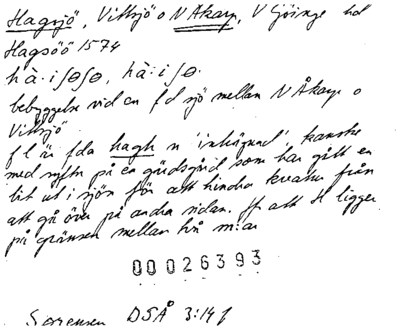 Hagsjö, Vittsjö o N Åkarp, V Göinge hd
Hagsöö 1574
hà·iʃɵʃɵ, hà·iʃɵ·
bebyggelse vid en f d sjö mellan N Åkarp o
Vittsjö
f l är fda hagh n 'inhägnad' kanske
med syftn på en gärdsgård som har gått en
bit ut i sjön för att hindra kreatur från
att gå över på andra sidan. Jf att sl ligger
på gränsen mellan två m:ar
00026393
Sørensen DSÅ 3:14 f